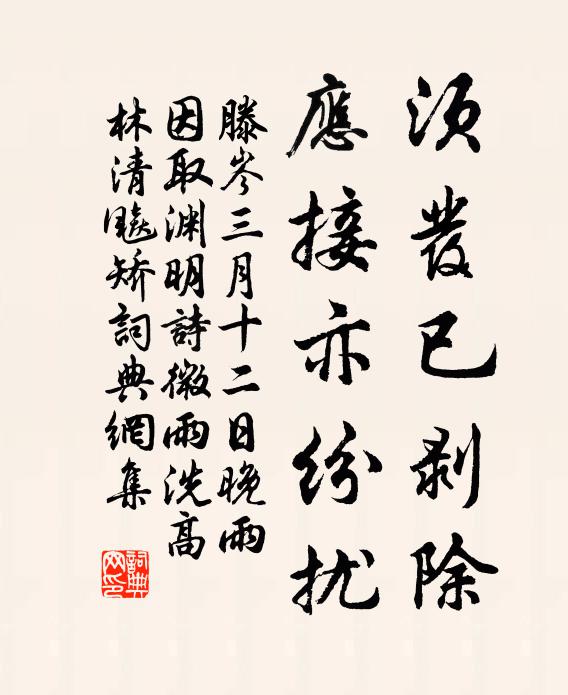 須發已剥除
應接亦紛扰
滕岑三月十二日晚雨
因取渊明詩微雨洗高
林清飈矫詞典網集
詞典網印